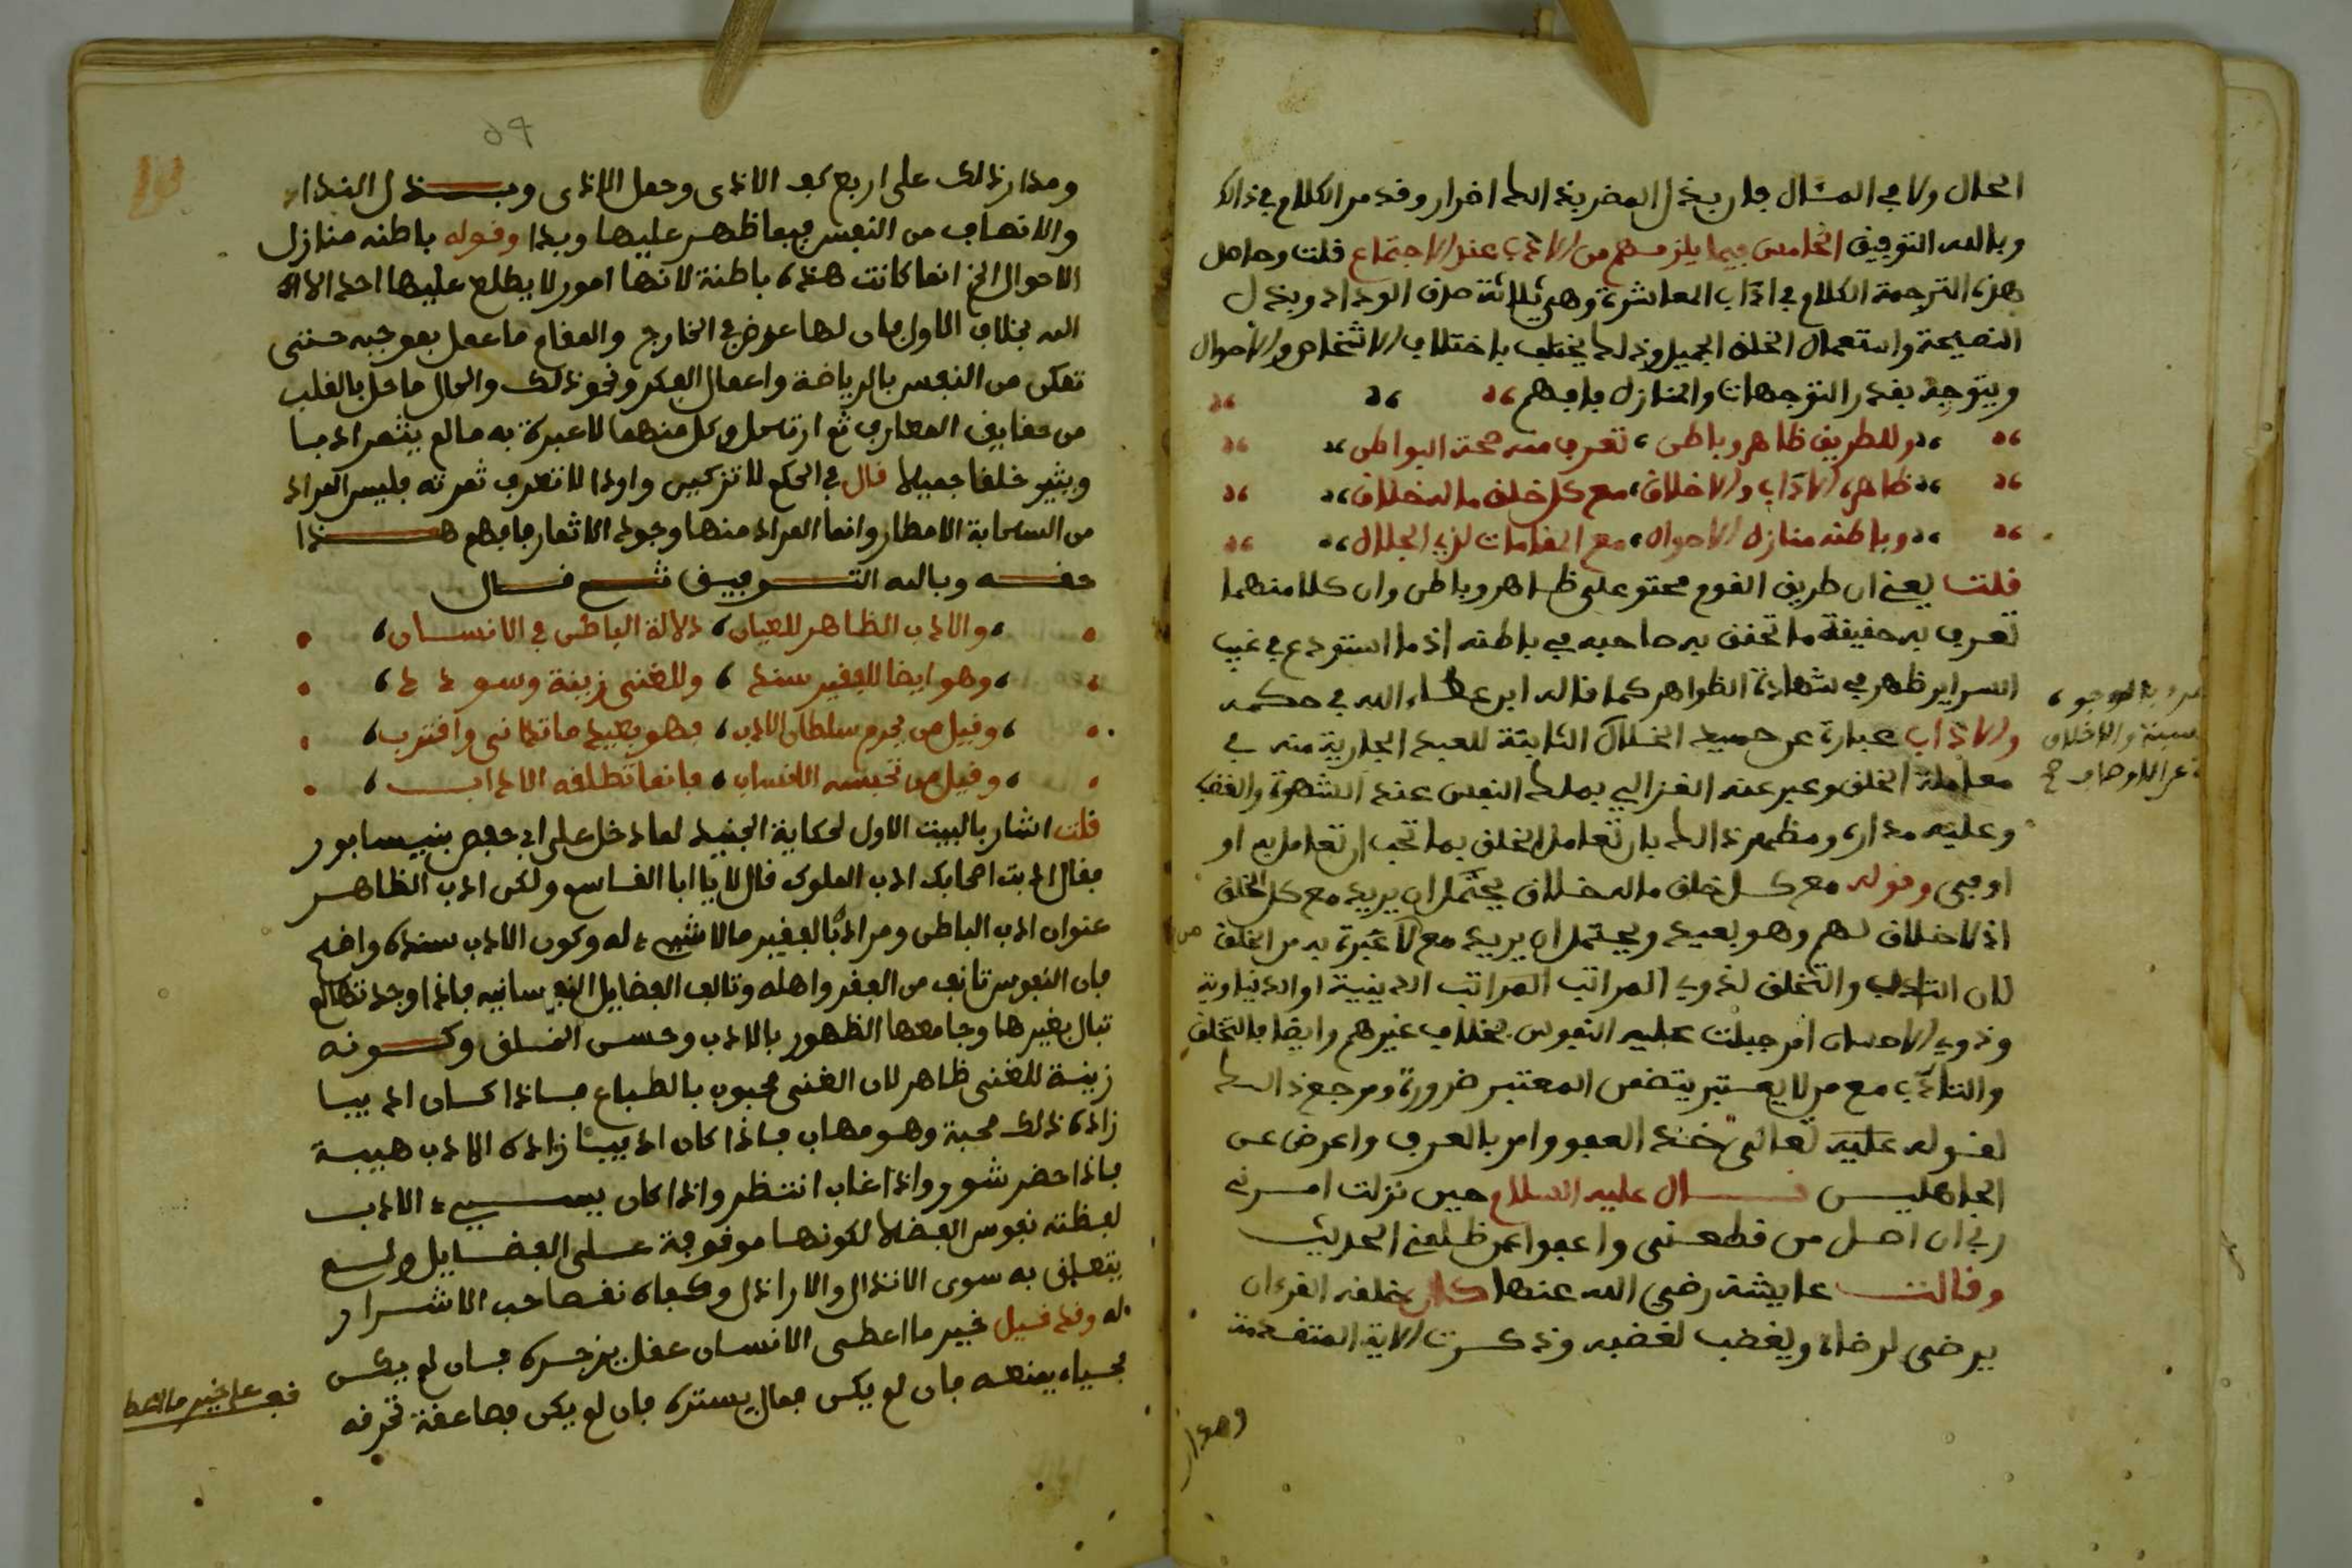 الحال ولا في المئال فان بخل المضر بذالك اضرار وقد مر الكلام في ذالك
وبالله التوفيق الخامس فيما يلزمهم من الاداب عند الاجتماع قلت وحاصل
هذه الترجمة الكلام في اداب المعاشرة وهي ثلاثة صدق الوداد وبذل
النصيحة واستعمال الخلق الجميل وذلك يختلف باختلاف الاشخاص والاحوال
ويتوجه بقدر التوجهات والمنازل فافهم
وللطريق ظاهر وباطن ، تعرف منه صحة البواطن
ظاهره الاداب والاخلاق ، مع كل خلق ما له خلاق
وباطنه منازل الاحوال ، مع المقامات لذي الجلال
قلت يعني ان طريق القوم محتو على ظاهر وباطن وان كلا منهما
تعرف به حقيقة ما تحقق به صاحبه في باطنه اذ ما استودع في غيب
السراير ظهر في شهادة الظواهر كما قاله ابن عطاء الله في حكمه
والاداب عبارة عن جميع الخلال الثابتة للعبد الجارية منه في
معاملة الخلق وعبر عنه الغزالي بملك النفس عند الشهوة والغضب
وعليه مداره ومظهر ذالك بان تعامل الخلق بما تحب ان تعامل به او
اوفى وقوله مع كل خلق ماله خلاق يحتمل ان يريد مع كل الخلق
اذ لا خلاق لهم وهو بعيد ويحتمل ان يريد مع لا عبرة به من الخلق
لان التادب والتخلق لذوي المراتب المراتب الدينية او الدنياوية
وذوي الاحسان امر جبلت عليه النفوس بخلاف غيرهم وايضا فالتخلق
والتادب مع من لا يعتبر يتضمن المعتبر ضرورة ومرجع ذالك
لقوله عليه تعالى خذ العفو وامر بالعرف واعرض عن
الجاهليس قال عليه السلام حين نزلت امرني
ربي ان اصل من قطعني واعفو عمن ظلمني الحديث
وقالت عايشة رضي الله عنها كان خلقه القرءان
يرضى لرضاه ويغضب لغضبه وذكرت الاية المتقدمة
ومدار
ومدار ذلك على اربع كف الاذى وحمل الاذى وبذل الندا
والانصاف من النفس فيما ظهر عليها وبدا وقوله باطنه منازل
الاحوال الخ انما كانت هذه باطنة لانها امور لا يطلع عليها احد الا الله
الله بخلاف الاول فان لها عرض في الخارج والمقام ما عمل بموجبه حتى
تمكن من النفس بالرياضة واعمال الفكر ونحو ذلك والحال ما حل بالقلب
من حقايق المعارف ثم ارتحل وكل منهما لا عبرة به ما لم يثمر ادبا
ويثير خلقا جميلا قال في الحكم لا تزكين واردا لا تعرف ثمرته فليس المراد
من السحابة الامطار وانما المراد منها وجود الاثمار فافهم هذا
حقه وبالله التوفيق ثم قال
والادب الظاهر للعيان ، دلالة الباطن في الانسان ،
وهو ايضا للفقير سند ، وللغني زينة وسودد ،
وقيل من يحرم سلطان الادب ، فهو بعيد ما تدانى واقترب ،
وقيل من تحبسه الانساب ، فانما تطلقه الاداب ،
قلت اشار بالبيت الاول لحكاية الجنيد لما دخل على ابي حفص بنيسابور
فقال ادبت اصحابك ادب الملوك قال لا يا ابا القاسم ولكن ادب الظاهر
عنوان ادب الباطن ومراده بالفقير ما لا شيء له وكون الادب سنده واضح
فان النفوس تانف من الفقر واهله وتالف الفضايل النفسانيه فاذا وجدتها لم
تبال بغيرها وجامعها الظهور بالادب وحسن الخلق وكونه
زينة للغني ظاهر لان الغني محبوب بالطباع فاذا كان اديبا
زاده ذلك محبة وهو مهاب فاذا كان اديبا زاده الادب هيبة
فاذا حضر شوور واذا غاب انتظر واذا كان يسيء الادب
لفظته نفوس الفضلا لكونها موقوفة على الفضايل ولم
يتعلق به سوى الانذال والاراذل وكفاه نقصا حب الاشرار
له وقد قيل خير ما اعطى الانسان عقل يزجره فان لم يكن
فحياء يمنعه فان لم يكن فمال يستره فان لم يكن فصاعقة تحرقه
قف على خير ما اعطى